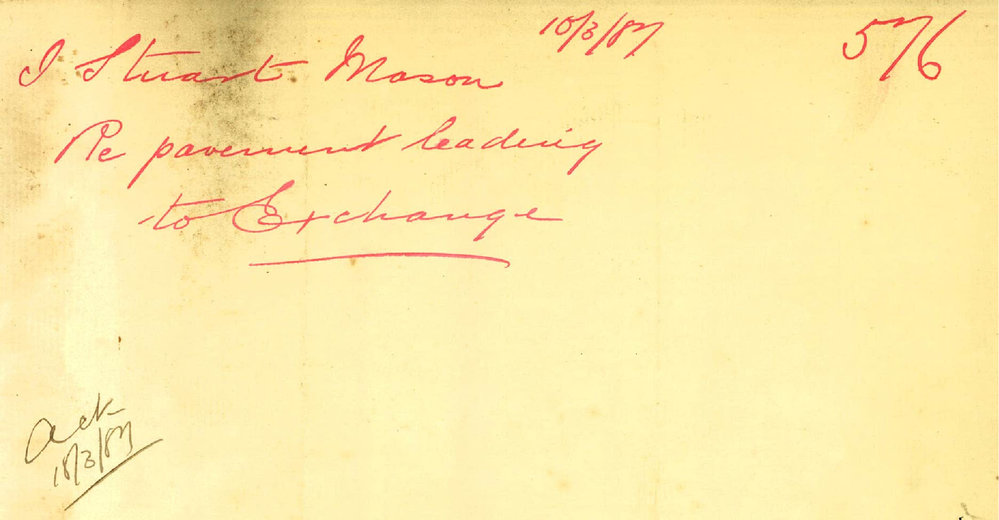 10/3/87 576
J Stuart Mason
Re pavement leading
to Exchange
Ack
10/3/87